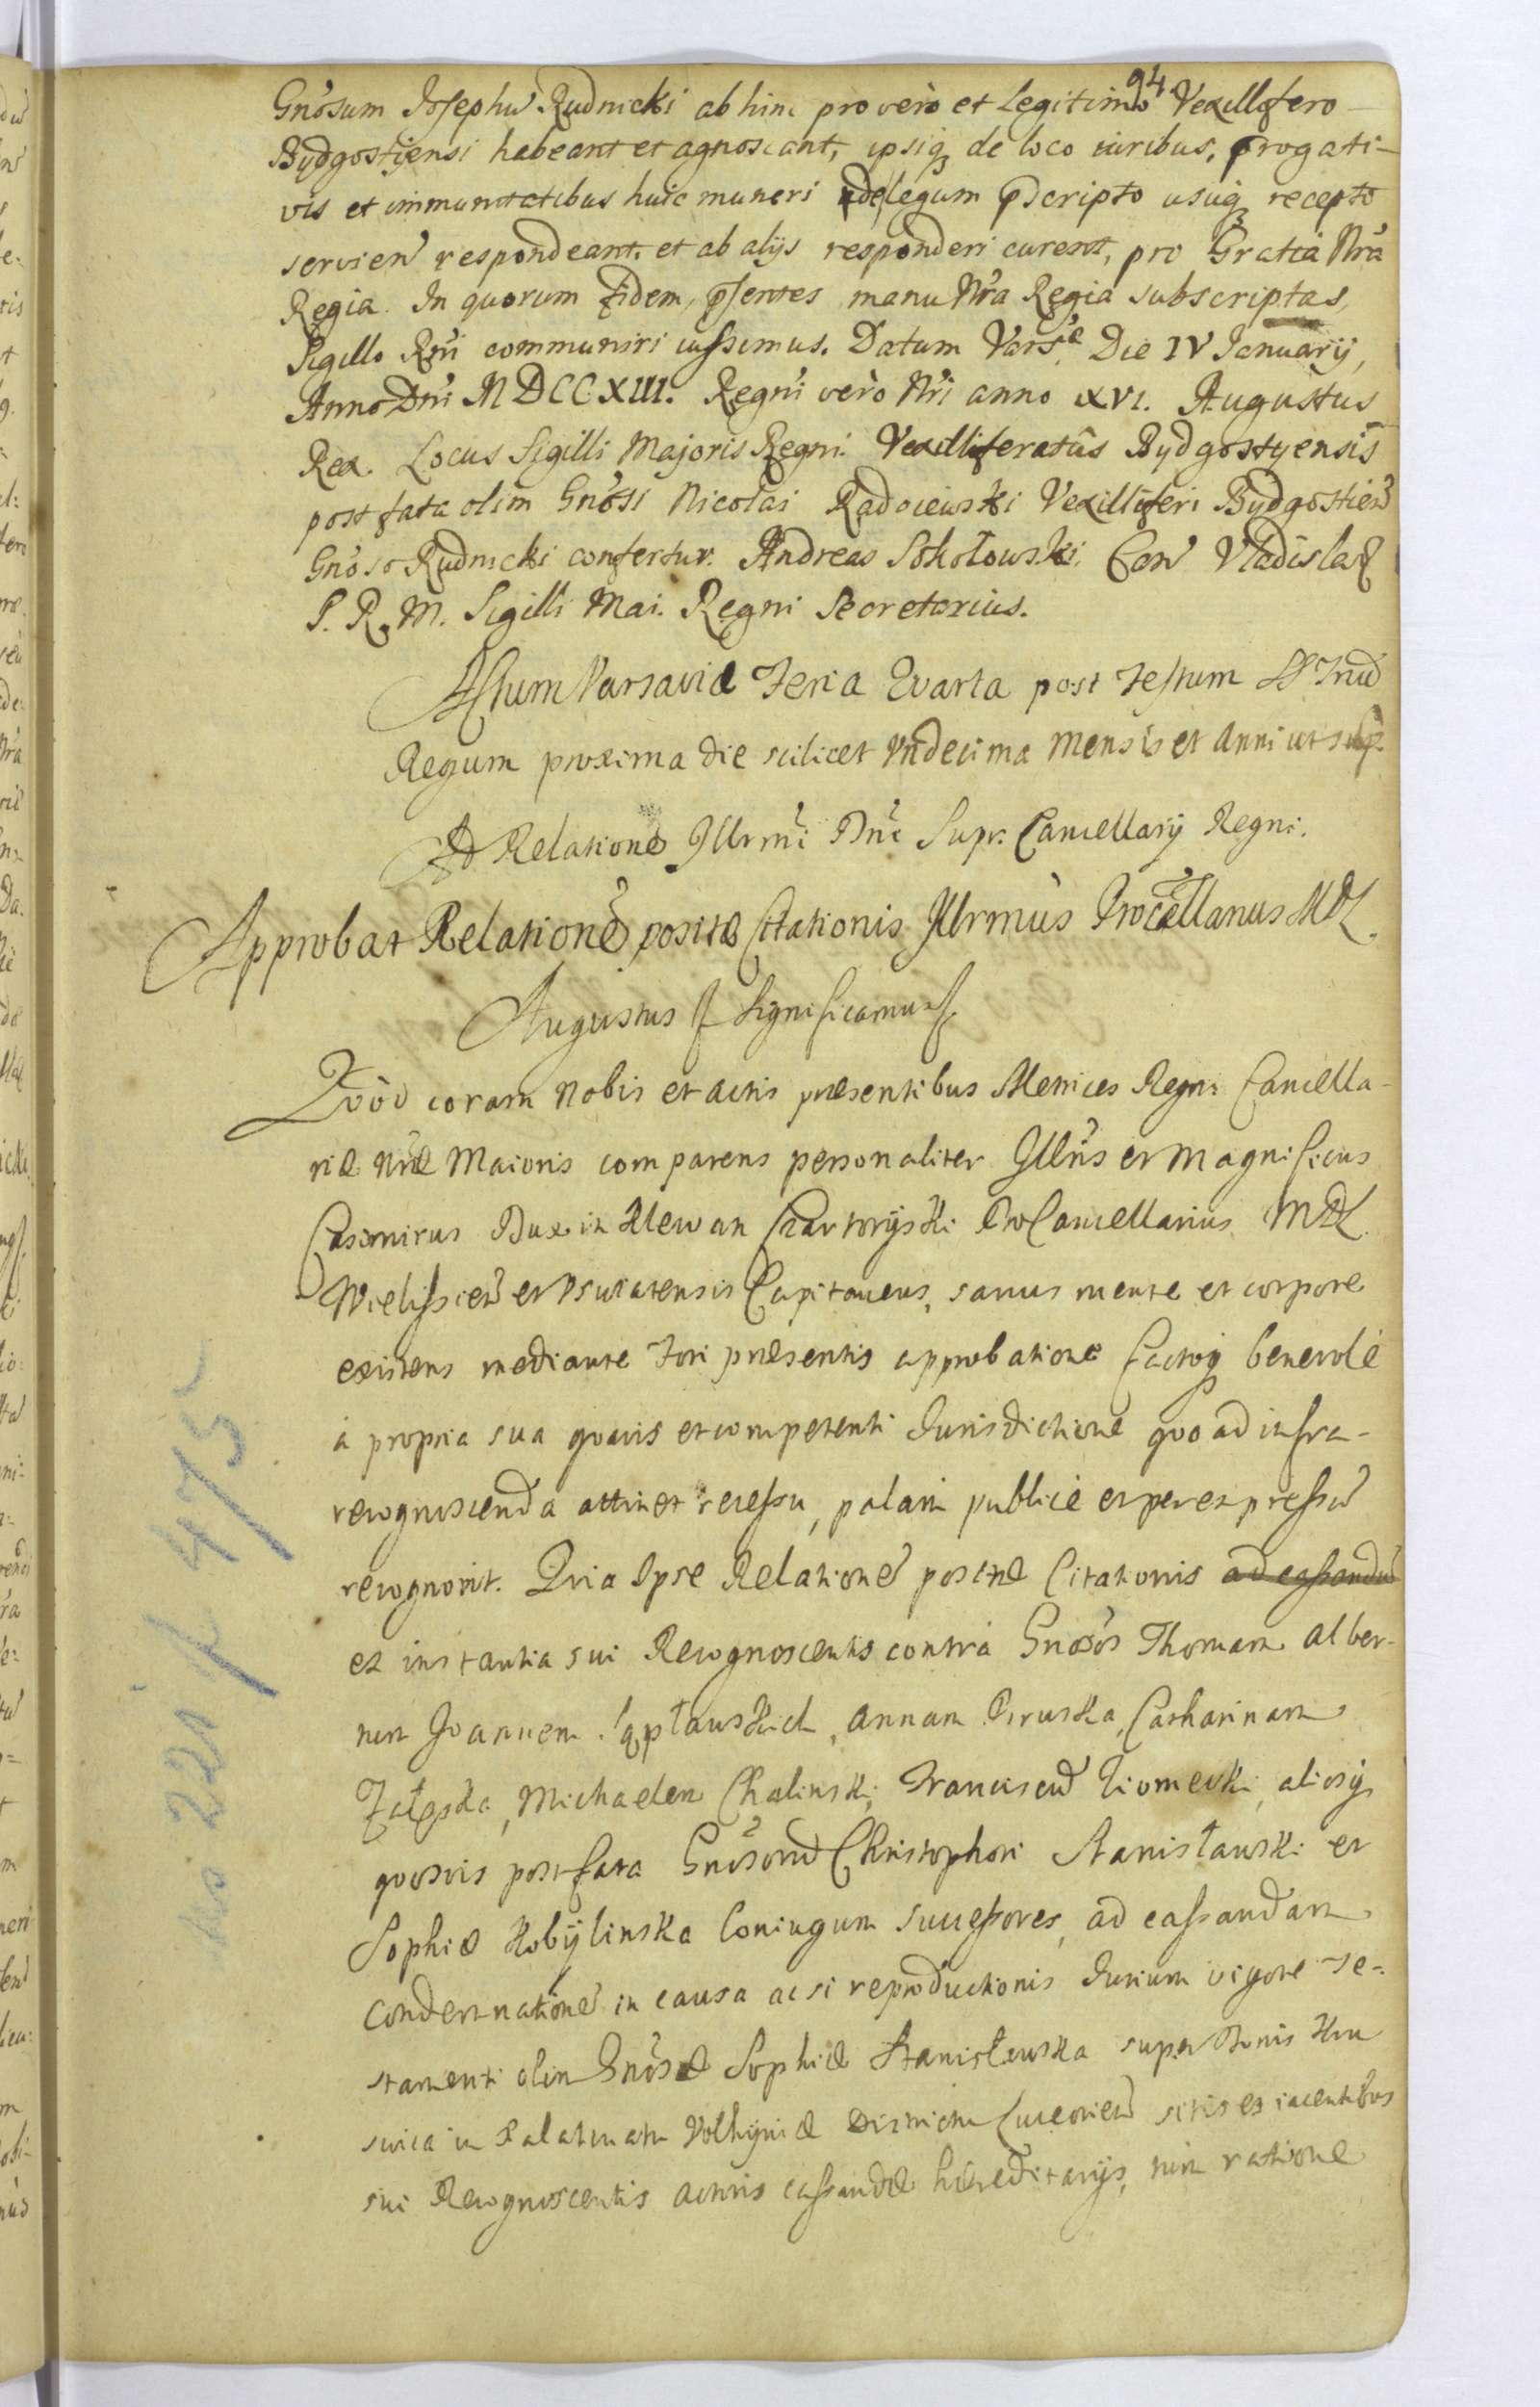 94
Gnosum Josephũ Rudnicki abhinc pro vero et legitimo Vexillifero
Bydgostiensi habeant et agnoscant, ipsiq; de loco iuribus, prrogati-
vis et immunitatibus huic muneri de legum prscripto usuq; recepto
servien̄ respondeant, et ab alijs responderi curent, pro Gratia Nr̃a
Regia. In quorum fidem, prsentes manu Nr̃a Regia subscriptas,
Sigillo Rñi communiri iussimus. Datum Varsæ Die IV January,
Anno Dñi MDCCXIII. Regni vero Nr̃i anno XVI. Augustus
Rex. Locus Sigilli Majoris Regni. Vexilliferatûs Bydgostyensis
post fata olim Gnosi Nicolai Radoiewski Vexilliferi Bydgostien̄
Gnoso Rudnicki confertur. Andreas Sokołowski Can̄ Vladislaȣ
S. R. M. Sigilli Mai. Regni Secretarius.
Actum Varsaviæ Feria Quarta post Festum SS Triũ
Regum proxima die scilicet Undecima Mensis et Anni ut sup.
Ad Relationẽ Illrmi Dñi Supr. Cancellarij Regni.
Approbat Relationẽ positæ Citationis Illrmus Procellanus MDL.
Augustus Significamus
Quòd coram Nobis et actis præsentibus Metrices Regni Cancella-
riæ Nr̃æ Maioris comparens personaliter Illris et Magnificus
Casimirus Dux in Klewan Czartoryski ProCancellarius MDL.
Wielissien̄ et Usviatensis Capitaneus, sanus mente et corpore
existens mediante Fori præsentis approbatione factoq; benevolè
à propria sua quavis et competenti Jurisdictione quo ad infra-
recognoscenda attinet recessu, palàm publicè et per expressũ
recognovit. Quia Ipse Relationẽ positæ Citationis ad cassandũ
ex instantia sui Recognoscentis contra Gnosos Thomam Alber-
tum Joannem, Annam Pruska, Catharinam
Załęska, Michaelem Chalinski, Franciscũ Ziomecki, aliosq;
quosvis post fata Gnosorũ Christophori Stanisławski et
Sophiæ Kobylinska Coniugum Successores, ad cassandam
Condemnationẽ in causa ac si reproductionis Jurium vigore Te-
stamenti olim Gnosæ Sophiæ Stanisławska super Bonis Hru
sviia in Palatinatu Volhyniæ Districtu Luceorien̄ sitis et iacentibus
sui Recognoscentis Actoris cassandæ hæreditarijs, tum ratione
No 221 f 475